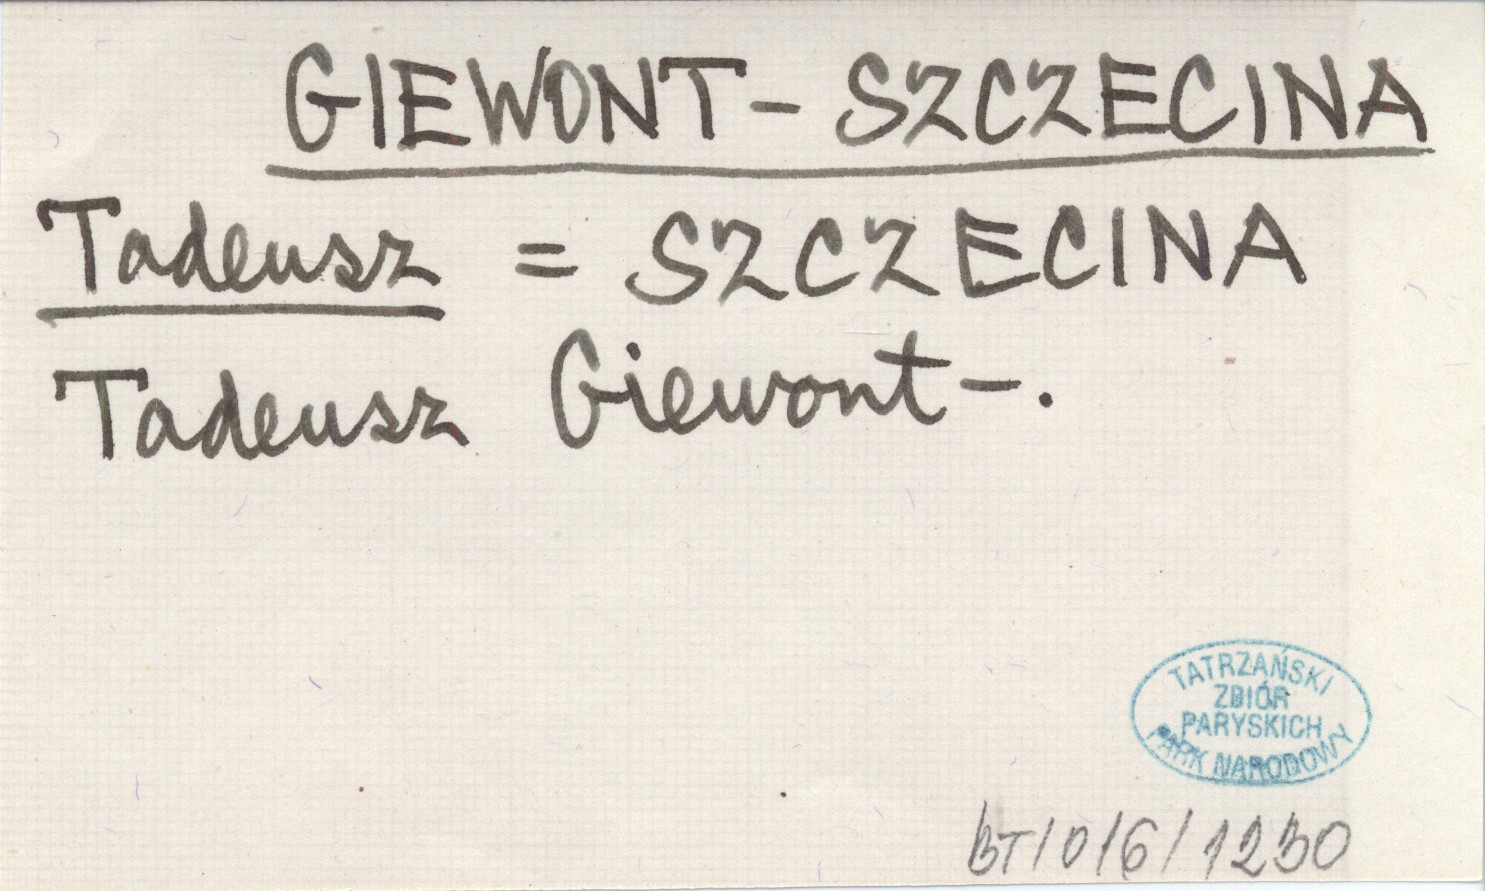 GIEWONT-SZCZECINA
Tadeusz = SZCZECINA
Tadeusz Giewont-.
TATRZAŃSKI
ZBIÓR
PARYSKICH
PARK NARODOWY
BT/0/6/1230